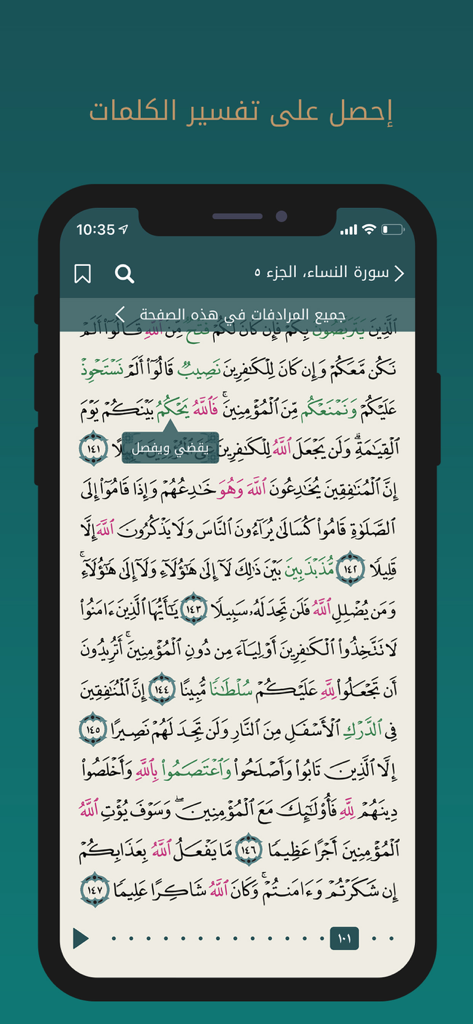 إحصل على تفسير الكلمات
10:35
سورة النساء، الجزء ٥
جميع المرادفات في هذه الصفحة
ٱلَّذِينَ يَتَرَبَّصُونَ بِكُمْ فَإِن كَانَ لَكُمْ فَتْحٌ مِّنَ ٱللَّهِ قَالُوٓا۟ أَلَمْ
نَكُن مَّعَكُمْ وَإِن كَانَ لِلْكَٰفِرِينَ نَصِيبٌ قَالُوٓا۟ أَلَمْ نَسْتَحْوِذْ
عَلَيْكُمْ وَنَمْنَعْكُم مِّنَ ٱلْمُؤْمِنِينَ ۚ فَٱللَّهُ يَحْكُمُ بَيْنَكُمْ يَوْمَ
ٱلْقِيَٰمَةِ ۗ وَلَن يَجْعَلَ ٱللَّهُ لِلْكَٰفِرِينَ ١٤١
يقضي ويفصل
إِنَّ ٱلْمُنَٰفِقِينَ يُخَٰدِعُونَ ٱللَّهَ وَهُوَ خَٰدِعُهُمْ وَإِذَا قَامُوٓا۟ إِلَى
ٱلصَّلَوٰةِ قَامُوا۟ كُسَالَىٰ يُرَآءُونَ ٱلنَّاسَ وَلَا يَذْكُرُونَ ٱللَّهَ إِلَّا
قَلِيلًا ١٤٢ مُّذَبْذَبِينَ بَيْنَ ذَٰلِكَ لَآ إِلَىٰ هَٰٓؤُلَآءِ وَلَآ إِلَىٰ هَٰٓؤُلَآءِ ۚ
وَمَن يُضْلِلِ ٱللَّهُ فَلَن تَجِدَ لَهُۥ سَبِيلًا ١٤٣ يَٰٓأَيُّهَا ٱلَّذِينَ ءَامَنُوا۟
لَا تَتَّخِذُوا۟ ٱلْكَٰفِرِينَ أَوْلِيَآءَ مِن دُونِ ٱلْمُؤْمِنِينَ ۚ أَتُرِيدُونَ
أَن تَجْعَلُوا۟ لِلَّهِ عَلَيْكُمْ سُلْطَٰنًا مُّبِينًا ١٤٤ إِنَّ ٱلْمُنَٰفِقِينَ
فِى ٱلدَّرْكِ ٱلْأَسْفَلِ مِنَ ٱلنَّارِ وَلَن تَجِدَ لَهُمْ نَصِيرًا ١٤٥
إِلَّا ٱلَّذِينَ تَابُوا۟ وَأَصْلَحُوا۟ وَٱعْتَصَمُوا۟ بِٱللَّهِ وَأَخْلَصُوا۟
دِينَهُمْ لِلَّهِ فَأُو۟لَٰٓئِكَ مَعَ ٱلْمُؤْمِنِينَ ۖ وَسَوْفَ يُؤْتِ ٱللَّهُ
ٱلْمُؤْمِنِينَ أَجْرًا عَظِيمًا ١٤٦ مَّا يَفْعَلُ ٱللَّهُ بِعَذَابِكُمْ
إِن شَكَرْتُمْ وَءَامَنتُمْ ۚ وَكَانَ ٱللَّهُ شَاكِرًا عَلِيمًا ١٤٧
١٠١